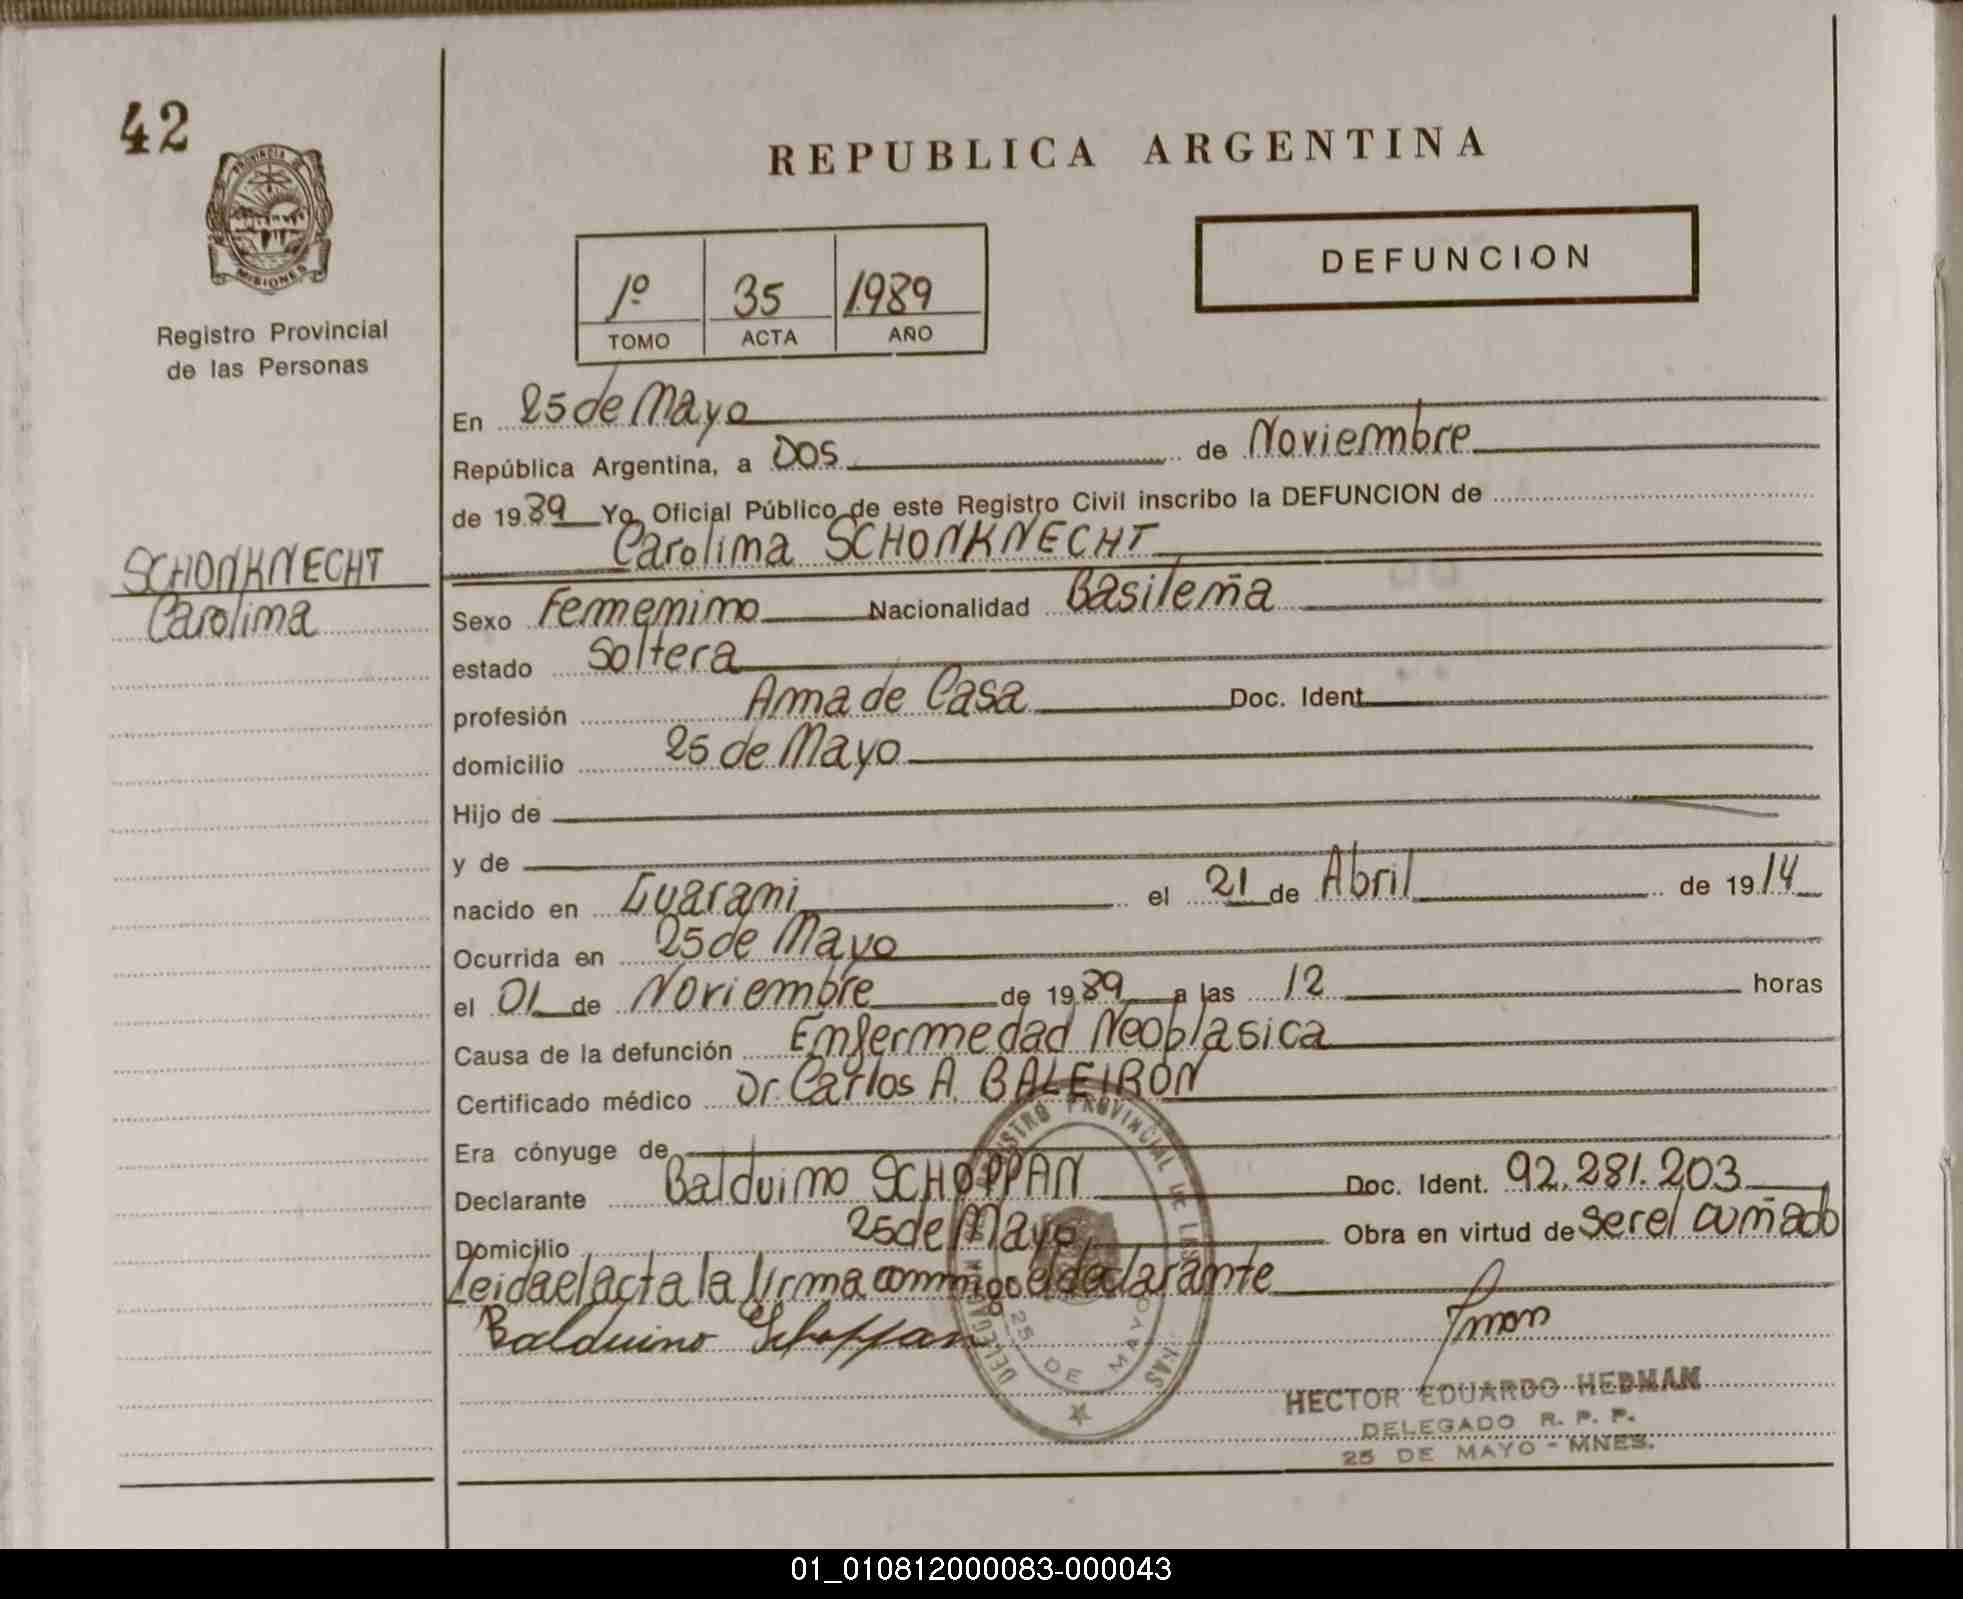 42
PROVINCIA DE
MISIONES
Registro Provincial
de las Personas
REPUBLICA ARGENTINA
DEFUNCION
1º 35 1.989
TOMO ACTA AÑO
En 25 de Mayo
República Argentina, a Dos de Noviembre
de 1989 Yo Oficial Público de este Registro Civil inscribo la DEFUNCION de
Carolina SCHONKNECHT
SCHONKNECHT
Carolina
Sexo Femenino Nacionalidad Basileña
estado Soltera
profesión Ama de Casa Doc. Ident.
domicilio 25 de Mayo
Hijo de
y de
nacido en Guarani el 21 de Abril de 1914
Ocurrida en 25 de Mayo
el 01 de Noviembre de 1989 a las 12 horas
Causa de la defunción Enfermedad Neoblasica
Certificado médico Dr. Carlos A. BALEIRON
Era cónyuge de
Declarante Balduino SCHOPPAN Doc. Ident. 92.281.203
Domicilio 25 de Mayo Obra en virtud de Ser el cuñado
Leida el acta la firma conmigo el declarante
Balduino Schoppan
REGISTRO PROVINCIAL DE LAS
25 DE MAYO
HECTOR EDUARDO HEDMAN
DELEGADO R. P. P.
25 DE MAYO - MNES.
01_010812000083-000043